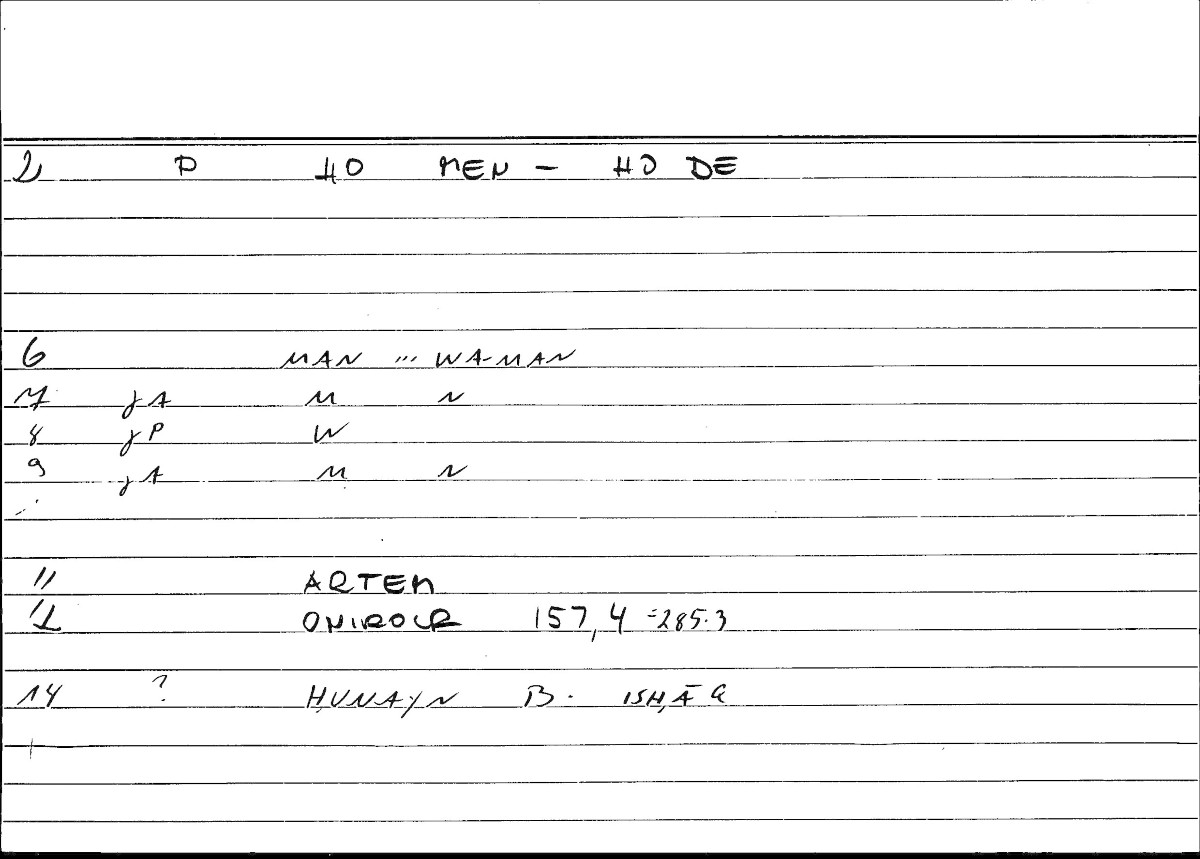 2 P HO MEN - HO DE
6 MAN ... WA-MAN
7 jA M N
8 jP W
9 jA M N
11 ARTEM
12 ONIROCR 157,4 =285.3
14 ? ḤUNAYN B. ISḤĀQ